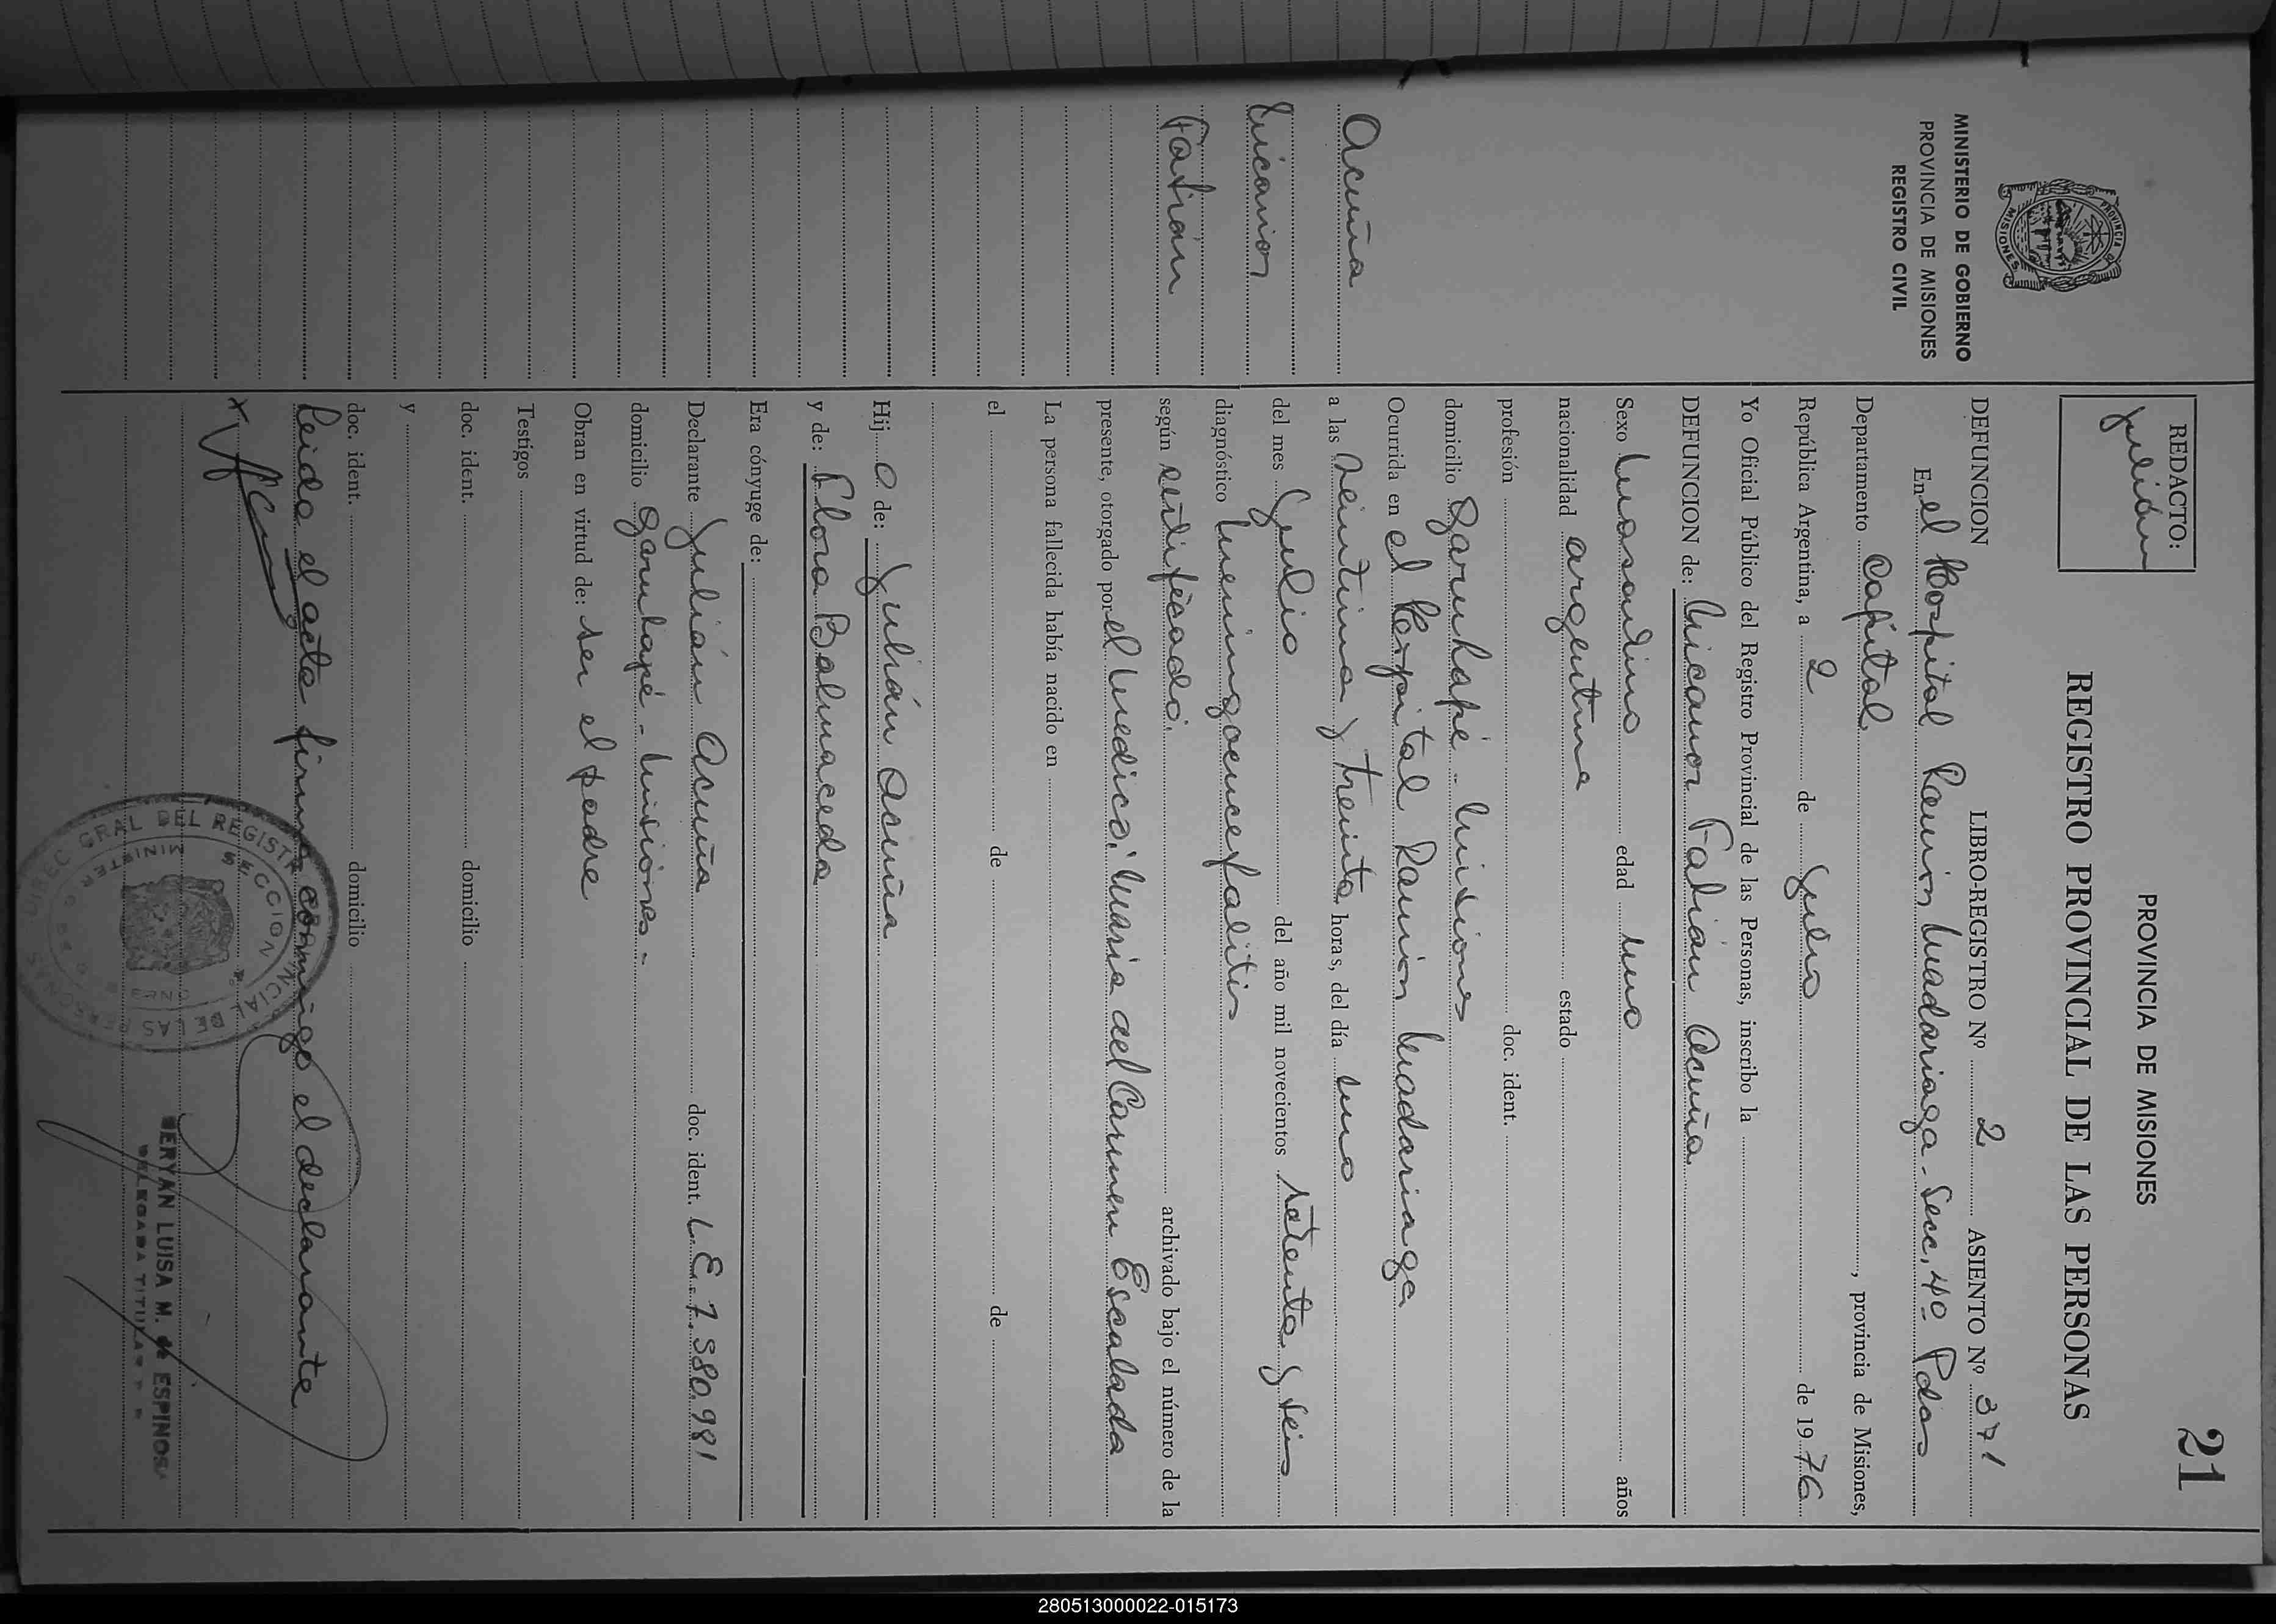 21
PROVINCIA DE MISIONES
REGISTRO PROVINCIAL DE LAS PERSONAS
REDACTO:
Julián
PROVINCIA
MISIONES
MINISTERIO DE GOBIERNO
PROVINCIA DE MISIONES
REGISTRO CIVIL
DEFUNCION LIBRO-REGISTRO Nº 2 ASIENTO Nº 371
En el Hospital Ramón Madariaga - Secc. 4º Pdas
Departamento Capital, provincia de Misiones,
República Argentina, a 2 de Julio de 1976
Yo Oficial Público del Registro Provincial de las Personas, inscribo la
DEFUNCION de: Nicanor Fabián Acuña
Sexo masculino edad uno años
nacionalidad argentina estado
profesión doc. ident.
domicilio Garuhapé - Misiones
Ocurrida en el Hospital Ramón Madariaga
Acuña
a las veintiuna y treinta horas, del día uno
Nicanor
del mes Julio del año mil novecientos setenta y seis
diagnóstico meningoencefalitis
Fabián
según certificado archivado bajo el número de la
presente, otorgado por el medico: María del Carmen Escalada
La persona fallecida había nacido en
el de de
Hijo de: Julián Acuña
y de: Flora Balmaceda
Era cónyuge de:
Declarante Julián Acuña doc. ident. L.E. 7.580.981
domicilio Garuhapé - Misiones -
Obran en virtud de: ser el padre
Testigos
doc. ident. domicilio
y
doc. ident. domicilio
Leida el acta firma conmigo el declarante
x
DIREC GRAL DEL REGISTR
DE LAS PERSONAS
SECCION
MINISTER
SERYAN LUISA M. de ESPINOS
DELEGADA TITULAR
280513000022-015173